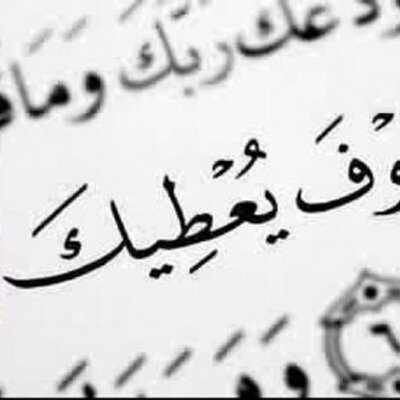 وَدَّعَكَ رَبُّكَ وَمَا
وْفَ يُعْطِيكَ
٦